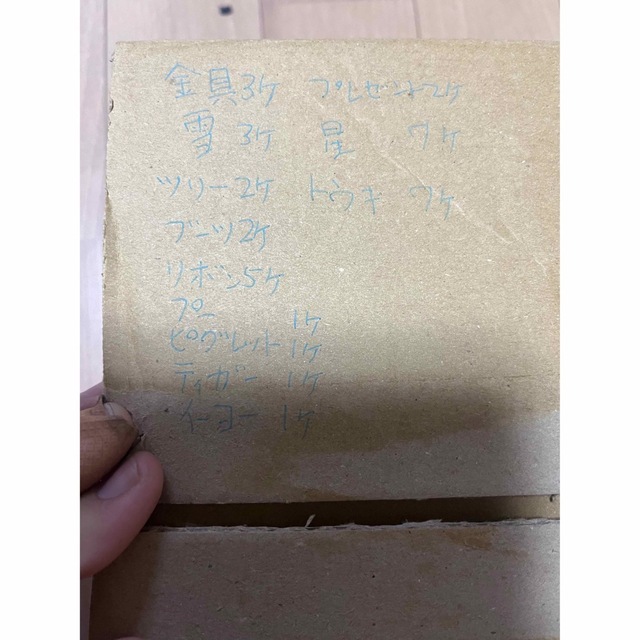 金具3ケ プレゼント2ケ
雪 3ケ 星 7ケ
ツリー2ケ トウキ 7ケ
ブーツ2ケ
リボン5ケ
プー 1ケ
ピグレット 1ケ
ティガー 1ケ
イーヨー 1ケ